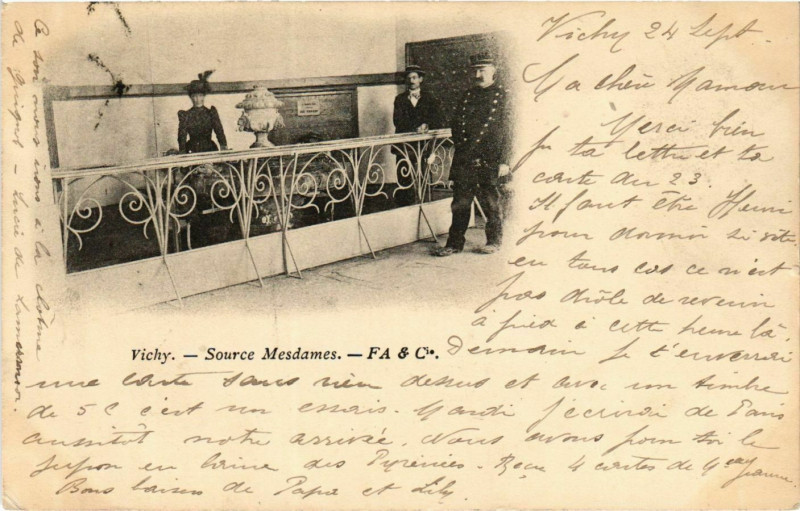 Vichy 24 Sept.
Ma chère Maman
Merci bien
pr ta lettre et ta
carte du 23.
Il faut être Henri
pour dormir si vite,
en tous cas ce n'est
pas drôle de revenir
à pied à cette heure là.
Vichy. — Source Mesdames. — FA & Cie.
Demain je t'enverrai
une carte sans rien dessus et avec un timbre
de 5 c c'est un essai. Mardi j'écrirai de Paris
aussitôt notre arrivée. Nous avons pour toi le
jupon en laine des Pyrénées. Reçu 4 cartes de Jeanne.
Bons baisers de Papa et Lily.
Ce soir nous irons à la
de — Lucie de Lammermoor.